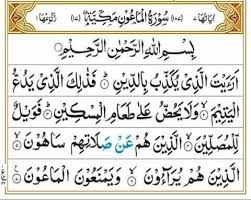 اٰيَاتُهَا ٧ (١٠٧) سُوْرَةُ الْمَاعُوْنِ مَكِّيَّةٌ (١٧) رُكُوْعُهَا ١
بِسْمِ اللّٰهِ الرَّحْمٰنِ الرَّحِيْمِ
اَرَءَيْتَ الَّذِيْ يُكَذِّبُ بِالدِّيْنِ ۝ فَذٰلِكَ الَّذِيْ يَدُعُّ
الْيَتِيْمَ ۝ وَلَا يَحُضُّ عَلٰى طَعَامِ الْمِسْكِيْنِ ۝ فَوَيْلٌ
لِّلْمُصَلِّيْنَ ۝ الَّذِيْنَ هُمْ عَنْ صَلَاتِهِمْ سَاهُوْنَ ۝
الَّذِيْنَ هُمْ يُرَآءُوْنَ ۝ وَيَمْنَعُوْنَ الْمَاعُوْنَ ۝